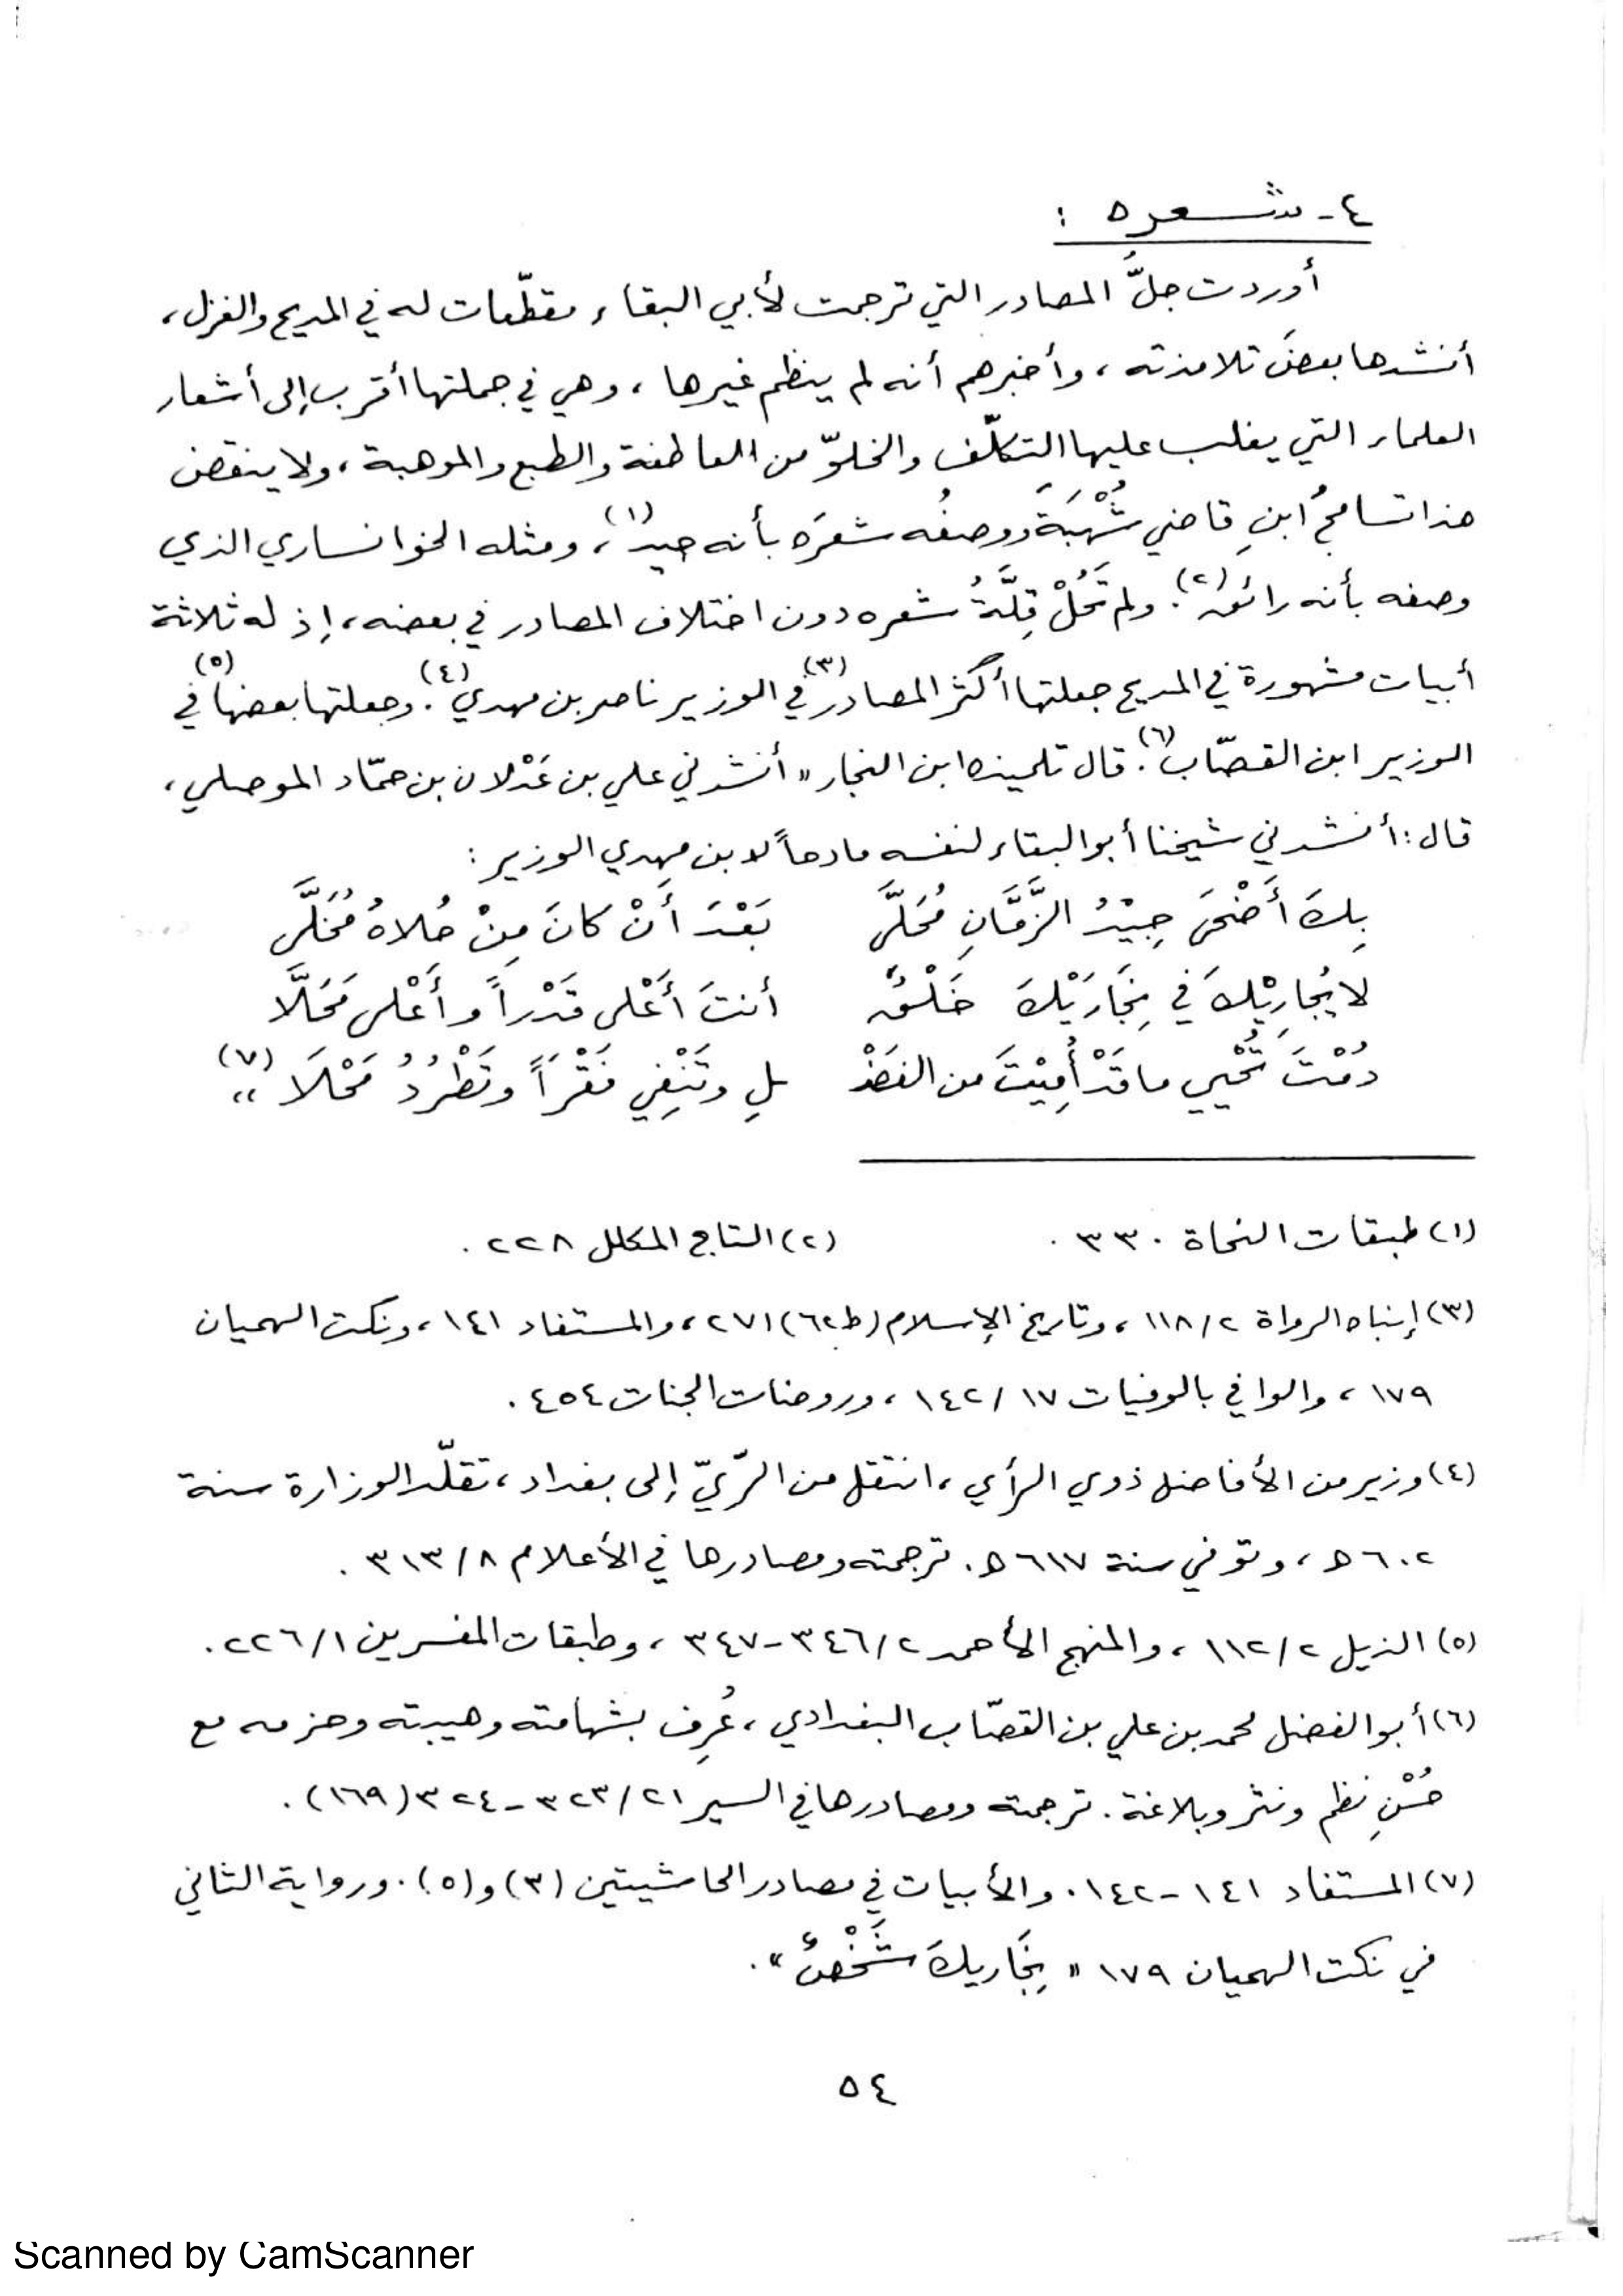 ٤ - شعره :
أوردت جلُّ المصادر التي ترجمت لأبي البقاء مقطّعات له في المديح والغزل،
أنشدها بعضَ تلامذته، وأخبرهم أنه لم ينظم غيرها، وهي في جملتها أقرب إلى أشعار
العلماء التي يغلب عليها التكلّف والخلوّ من العاطفة والطبع والموهبة، ولا ينقض
هذا تسامحُ ابنِ قاضي شُهْبَةَ ووصفُه شعرَه بأنه جيد(١)، ومثله الخوانساري الذي
وصفه بأنه رائق(٢). ولم تَحُلْ قِلَّةُ شعره دون اختلاف المصادر في بعضه، إذ له ثلاثة
أبيات مشهورة في المديح جعلتها أكثر المصادر(٣) في الوزير ناصر بن مهدي(٤). وجعلتها بعضها(٥) في
الوزير ابن القصّاب(٦). قال تلميذه ابن النجار «أنشدني علي بن عَدْلان بن حمّاد الموصلي،
قال: أنشدني شيخنا أبو البقاء لنفسه مادحاً لابن مهدي الوزير:
بِكَ أَضْحَى جِيْدُ الزَّمَانِ مُحَلَّى بَعْدَ أَنْ كانَ مِنْ حُلاهُ مُخَلَّى
لا يُجارِيْكَ في نِجَارَيْكَ خَلْقٌ أنتَ أَعْلى قَدْراً وأَعْلى مَحَلَّا
دُمْتَ تُحْيي ما قَدْ أُمِيْتَ من الفَضْـ ـلِ وتَنْفِي فَقْراً وتَطْرُدُ مَحْلَا»(٧)
(١) طبقات النحاة ٣٣٠ . (٢) التاج المكلل ٢٢٨ .
(٣) إنباه الرواة ٢/ ١١٨، وتاريخ الإسلام (ط٦٢) ٢٧١، والمستفاد ١٤١، ونكت الهميان
١٧٩، والوافي بالوفيات ١٧/ ١٤٢، وروضات الجنات ٤٥٤ .
(٤) وزير من الأفاضل ذوي الرأي، انتقل من الرّيّ إلى بغداد، تقلّد الوزارة سنة
٦٠٢ هـ، وتوفي سنة ٦١٧ هـ. ترجمته ومصادرها في الأعلام ٨/ ٣١٣ .
(٥) الذيل ٢/ ١١٢، والمنهج الأحمد ٢/ ٣٤٦-٣٤٧، وطبقات المفسرين ١/ ٢٢٦ .
(٦) أبو الفضل محمد بن علي بن القصّاب البغدادي، عُرِف بشهامته وهيبته وحزمه مع
حُسْنِ نظم ونثر وبلاغة. ترجمته ومصادرها في السير ٢١/ ٣٢٣-٣٢٤ (١٦٩) .
(٧) المستفاد ١٤١-١٤٢. والأبيات في مصادر الحاشيتين (٣) و(٥). ورواية الثاني
في نكت الهميان ١٧٩ «نِجَاريكَ شَخْصٌ» .
٥٤
Scanned by CamScanner